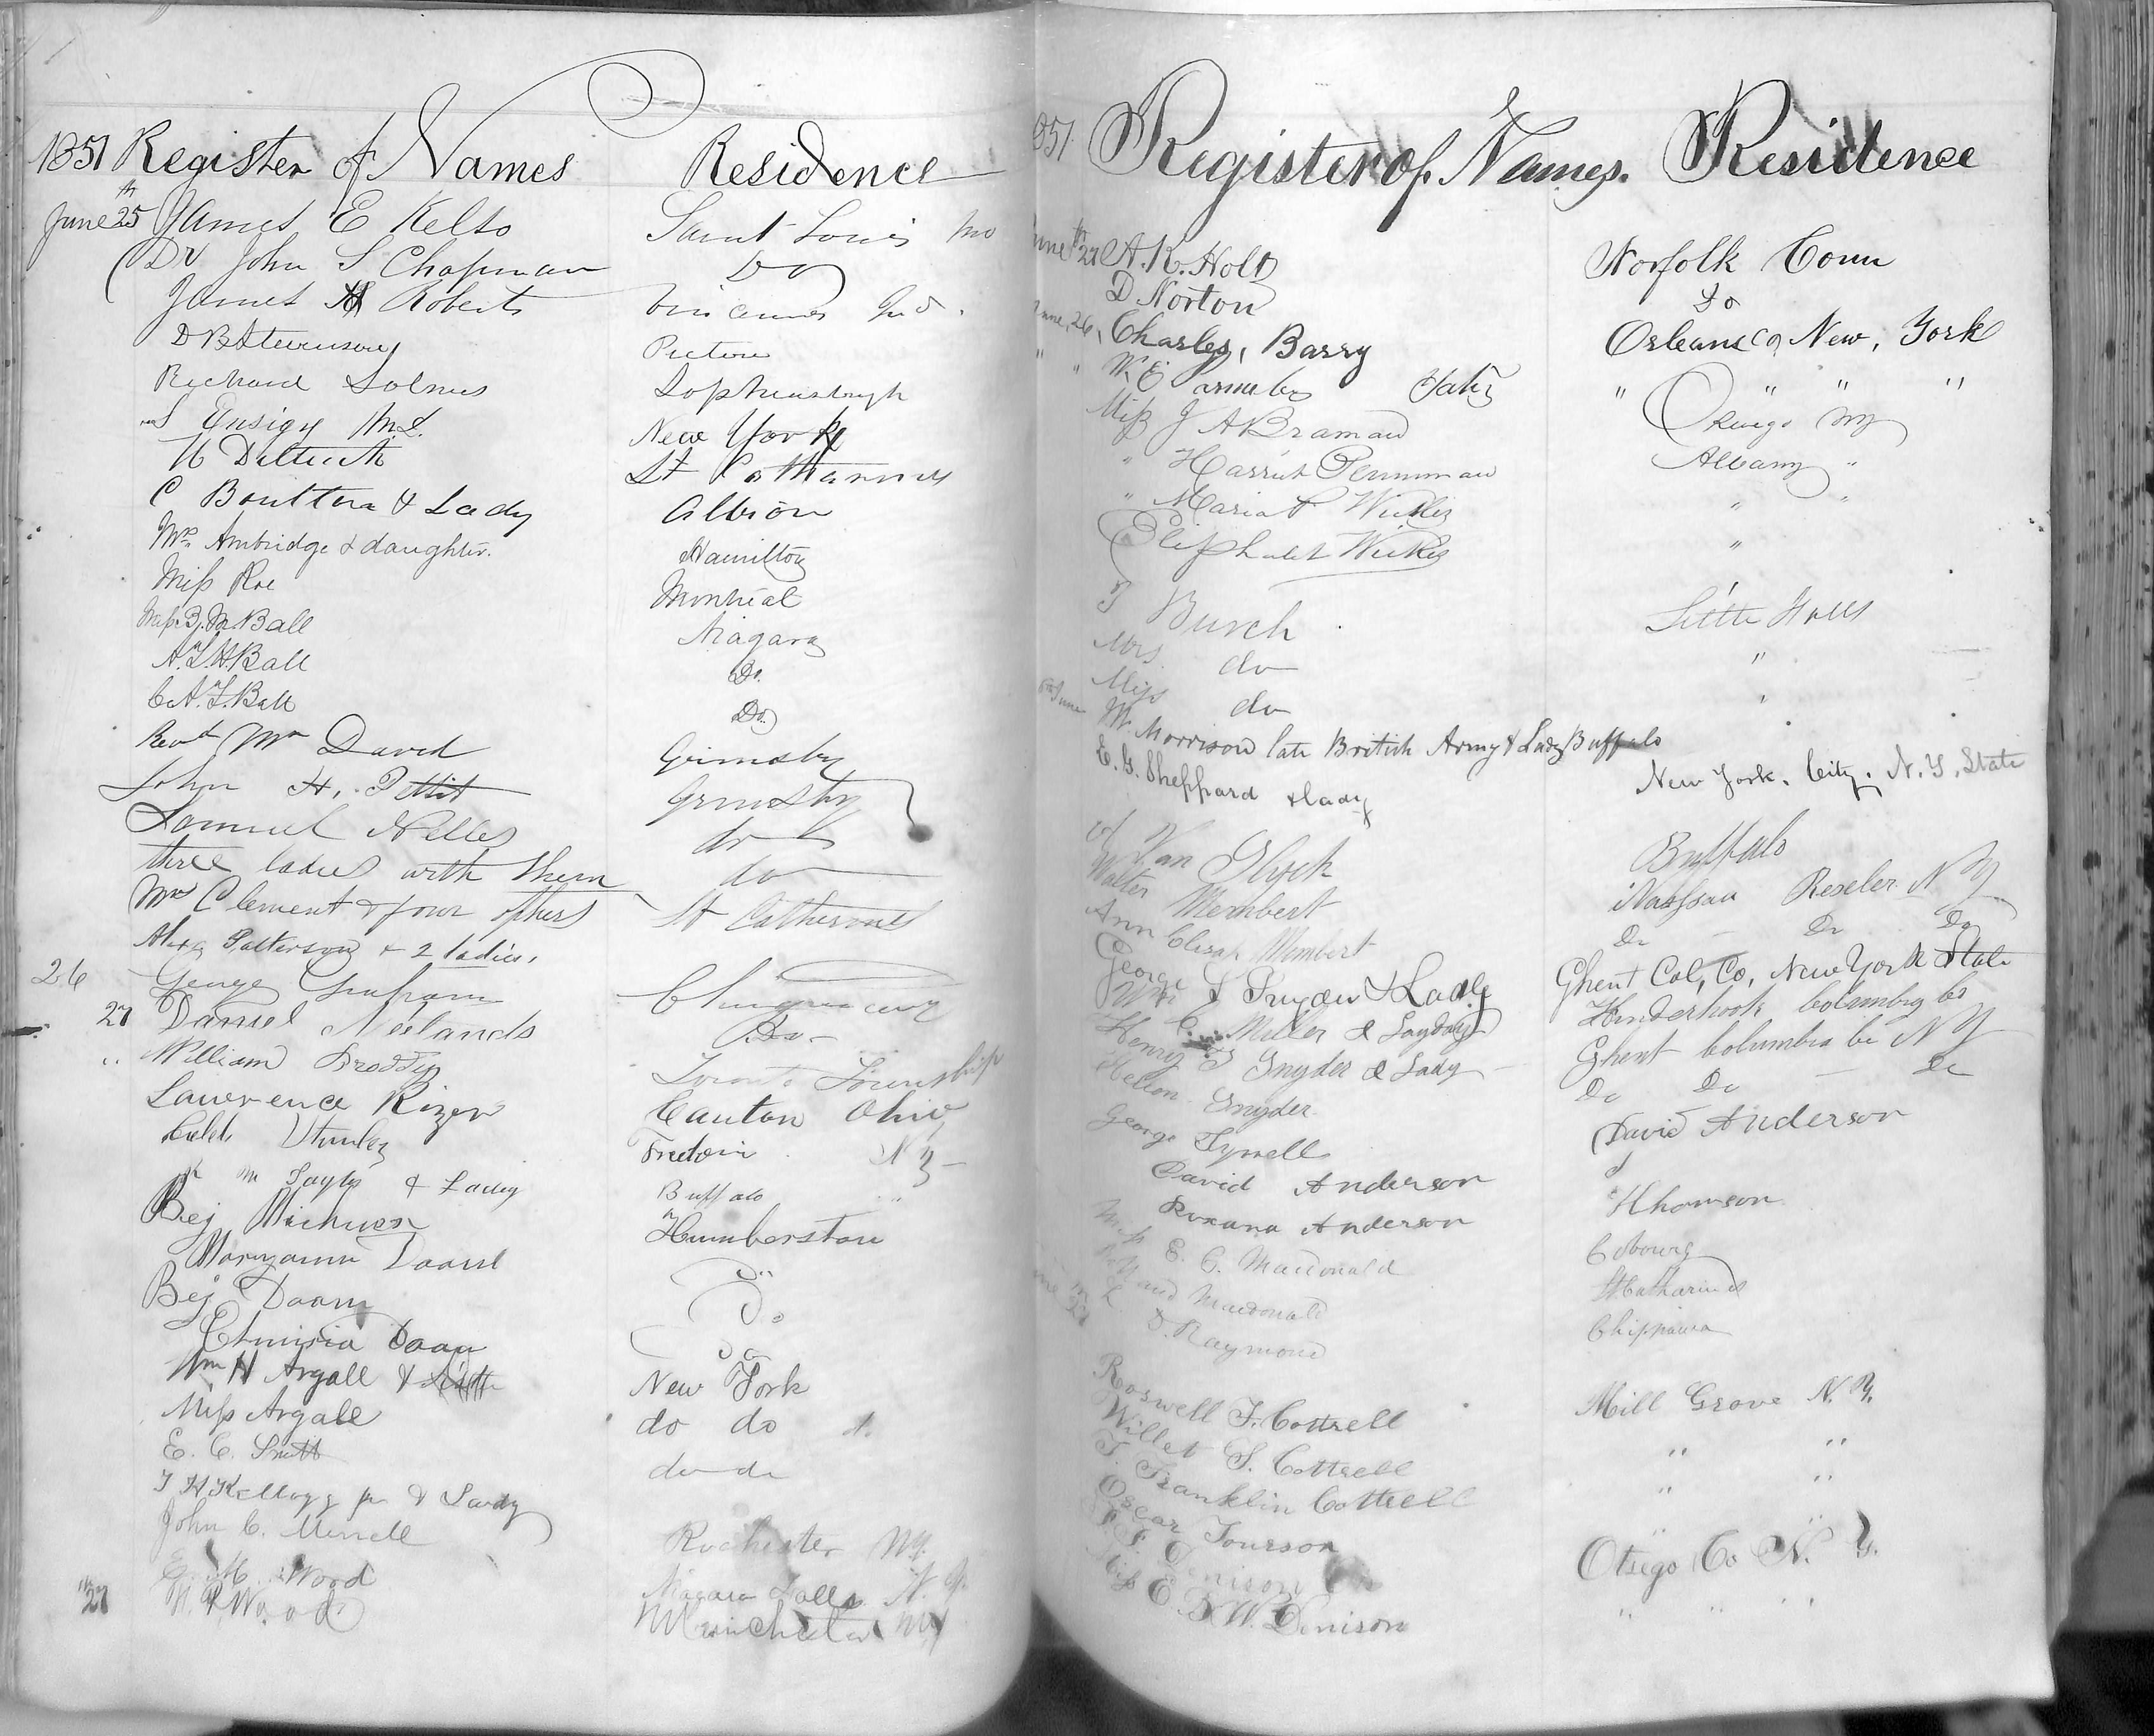 1851 Register of Names Residence
June 25th James E Kelso Saint Louis Mo
Dr John S Chapman Do
James H Roberts Vincennes Ind.
D B Stevenson Picton
Richard Sophiasburgh
S Ensign M.D. New York
St Catharines
C Boulton & Lady Albion
Mrs Ambridge & daughter. Hamilton
Miss Roe Montreal
Miss B. M. Ball Niagara
A. L. H. Ball Do.
C. A. F. Ball Do.
Revd Mr David Grimsby
John H. Pettit Grimsby
Samuel Nelles do
three ladies with them do
Mrs Clement & four others St Catherines
Alex Patterson & 2 ladies.
26 George Graham Chinguacousy
27 Daniel Neelands Do
" William Township
Lawrence Rizer Canton Ohio
Stanley Fredonia N Y
Taylor & Lady Buffalo "
Bej Humberston
Maryann Daani Do
Bej Daani Do
Daan Do
Wm H Argall & New York
Miss Argall do do
E. C. Smith do do
T H Kellogg jr & Lady
John C. Merrell Rochester NY.
E. M. Wood Niagara Falls N. Y.
27 N. R Wood NY
1851 Register of Names. Residence
June 27th A. K. Holt Norfolk Conn
D Norton Do
June, 26, Charles, Barry Orleans Co, New, York
" " W. E. Yates " " " "
Miss J A Braman Oswego NY
" Harriet Perriman Albany "
" Maria P Wickes " "
Eliphalet Wickes "
Burch Little Falls
Mrs do "
Miss do "
June W. Morrison late British Army & Lady Buffalo
E. G. Sheppard & lady New York. City. N. Y. State
Van Slyck Buffalo
Walter Membert Nassau Reseler N Y
Ann Elizah Membert Do Do Do
George S Snyder & Lady Ghent Col, Co, New York State
Wm C. Miller & Lady Kinderhook Columbia Co
Henry S Snyder & Lady Ghent Columbia Co N Y
Helen Snyder Do Do Do
George Tyrrell David Anderson
David Anderson
Roxana Anderson Thomson
Miss E. C. Macdonald Cobourg
Macdonald St Catharines
June 27 D. Raymond Chippawa
Roswell F. Cottrell Mill Grove N. Y.
Willet S. Cottrell " "
T. Franklin Cottrell " "
Oscar Tourson "
F. F Denison Otsego Co N. Y.
Miss E. D. W. Denison " " " "